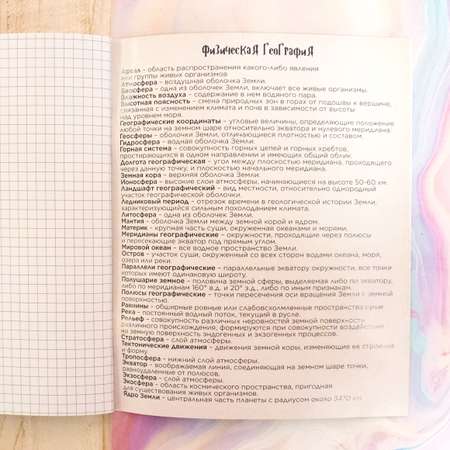 ФИЗИЧЕСКАЯ ГЕОГРАФИЯ
Ареал – область распространения какого-либо явления
или группы живых организмов
Атмосфера – воздушная оболочка Земли.
Биосфера – одна из оболочек Земли, включает все живые организмы.
Влажность воздуха – содержание в нем водяного пара.
Высотная поясность – смена природных зон в горах от подошвы к вершине,
связанная с изменением климата и почв в зависимости от высоты
над уровнем моря.
Географические координаты – угловые величины, определяющие положение
любой точки на земном шаре относительно экватора и нулевого меридиана.
Геосферы – оболочки Земли, отличающиеся плотностью и составом.
Гидросфера – водная оболочка Земли.
Горная система – совокупность горных цепей и горных хребтов,
простирающихся в одном направлении и имеющих общий облик.
Долгота географическая – угол между плоскостью меридиана, проходящего
через данную точку, и плоскостью начального меридиана.
Земная кора – верхняя оболочка Земли.
Ионосфера – высокие слои атмосферы, начинающиеся на высоте 50-60 км.
Ландшафт географический – вид местности, относительно однородный
участок географической оболочки.
Ледниковый период – отрезок времени в геологической истории Земли,
характеризующий сильным похолоданием климата.
Литосфера – одна из оболочек Земли.
Мантия – оболочка Земли между земной корой и ядром.
Материк – крупная часть суши, окруженная океанами и морями.
Меридианы географические – окружности, проходящие через полюсы
и пересекающие экватор под прямым углом.
Мировой океан – все водное пространство Земли.
Остров – участок суши, окруженный со всех сторон водами океана, моря,
озера или реки.
Параллели географические – параллельные экватору окружности, все точки
которых имеют одинаковую широту.
Полушарие земное – половина земной сферы, выделяемая либо по экватору,
либо по меридианам 160° в.д. и 20° з.д., либо по иным признакам.
Полюсы географические – точки пересечения оси вращения Земли с земной
поверхностью.
Равнины – обширные ровные или слабовсхолмленные пространства суши
Река – постоянный водный поток, текущий в русле.
Рельеф – совокупность различных неровностей земной поверхности
различного происхождения, формируются при совокупности воздействия
на земную поверхность эндогенных и экзогенных процессов.
Стратосфера – слой атмосферы.
Тектонические движения – движения земной коры, изменяющие ее строение
и форму.
Тропосфера – нижний слой атмосферы.
Экватор – воображаемая линия, соединяющая на земном шаре точки,
равноудаленные от полюсов.
Экзосфера – слой атмосферы.
Экосфера – область космического пространства, пригодная
для существования живых организмов.
Ядро Земли – центральная часть планеты с радиусом около 3470 км.